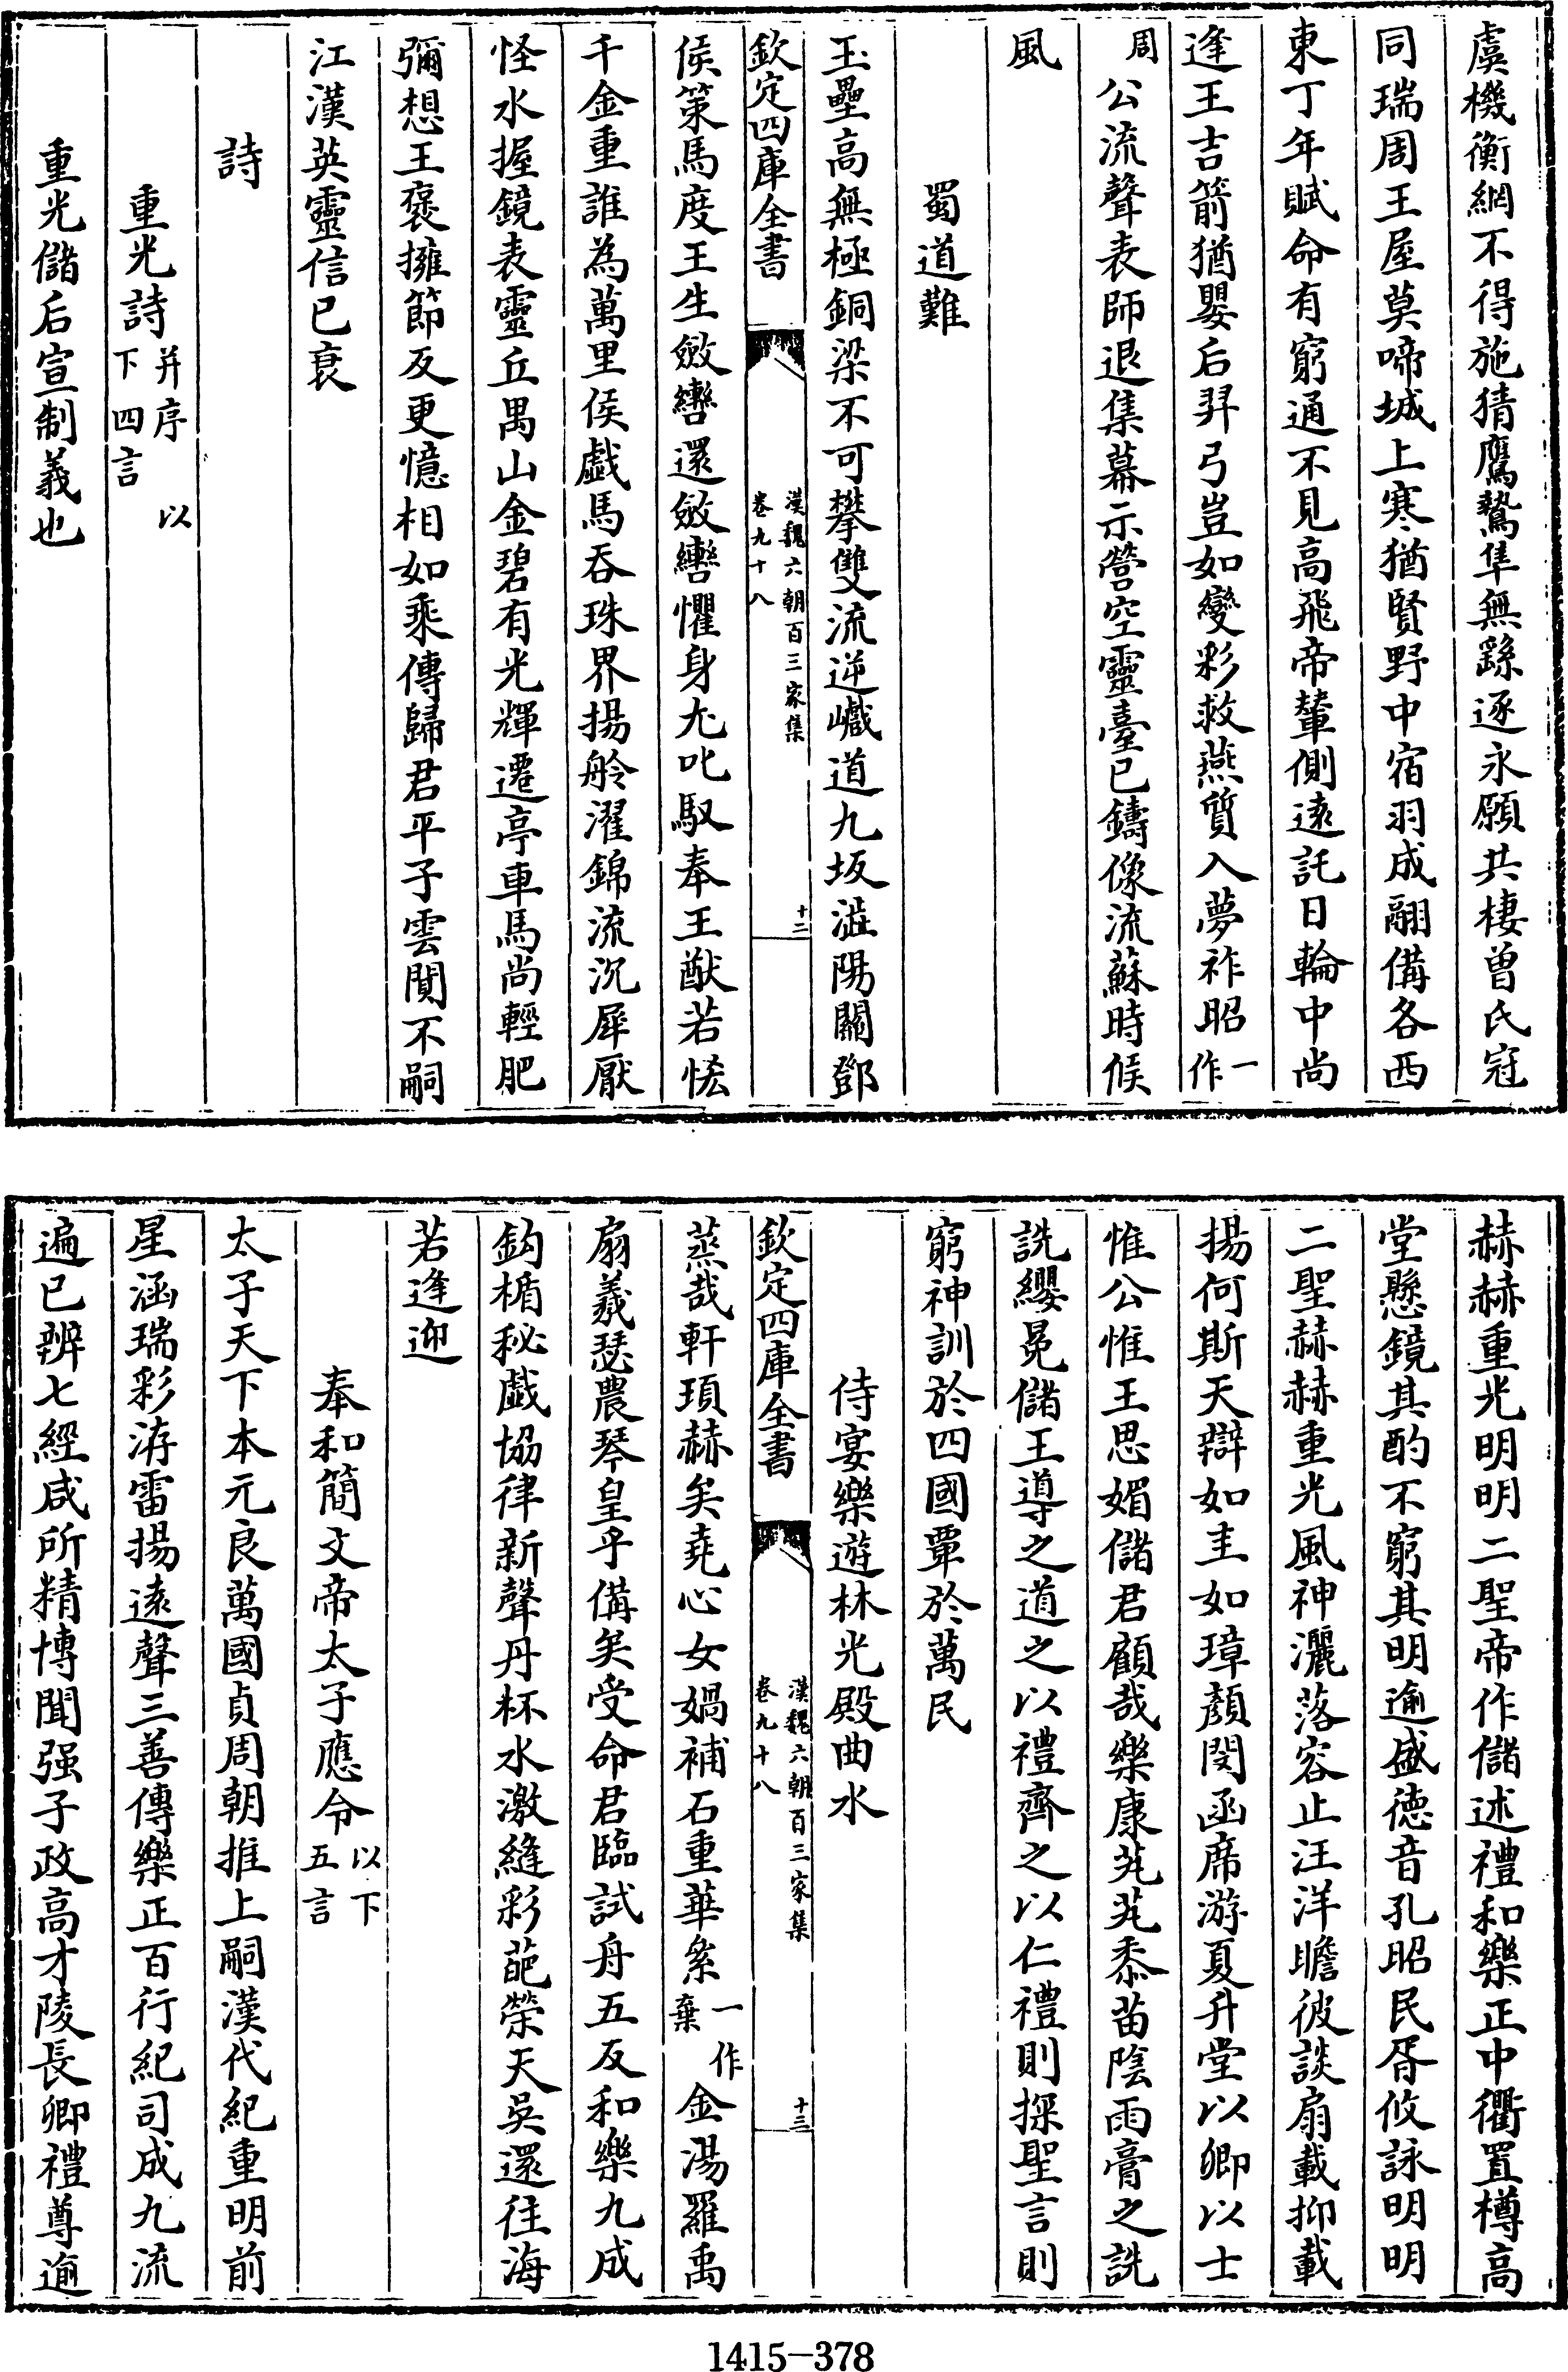 虞機衡網不得施猜鷹鷙隼無繇逐永願共棲曾氏冠
同瑞周王屋莫啼城上寒猶賢野中宿羽成翮備各西
東丁年賦命有窮通不見高飛帝輦側遠託日輪中尚
逢王吉箭猶嬰后羿弓豈如變彩救燕質入夢祚昭一作
周公流聲表師退集幕示營空靈臺已鑄像流蘇時候
風
蜀道難
玉壘高無極銅梁不可攀雙流逆巇道九坂澁陽關鄧
欽定四庫全書
漢魏六朝百三家集
卷九十八
十二
侯策馬度王生斂轡還斂轡懼身尤叱馭奉王猷若恡
千金重誰為萬里侯戲馬吞珠界揚舲濯錦流沉犀厭
怪水握鏡表靈丘禺山金碧有光輝遷亭車馬尚輕肥
彌想王褒擁節反更憶相如乘傳歸君平子雲閴不嗣
江漢英靈信已衰
詩
重光詩并序以下四言
重光儲后宣制義也
赫赫重光明明二聖帝作儲述禮和樂正中衢置樽高
堂懸鏡其酌不窮其明逾盛德音孔昭民胥攸詠明明
二聖赫赫重光風神灑落容止汪洋瞻彼談扇載抑載
揚何斯天辯如圭如璋顏閔函席游夏升堂以卿以士
惟公惟王思媚儲君顧哉樂康芃芃黍苗陰雨膏之詵
詵纓冕儲王導之道之以禮齊之以仁禮則探聖言則
窮神訓於四國覃於萬民
侍宴樂遊林光殿曲水
欽定四庫全書
漢魏六朝百三家集
卷九十八
十三
蒸哉軒頊赫矣堯心女媧補石重華絫一作棄金湯羅禹
扇羲瑟農琴皇乎備矣受命君臨試舟五反和樂九成
鈎楯秘戲協律新聲丹杯水激縫彩葩榮天吳還往海
若逢迎
奉和簡文帝太子應令以下五言
太子天下本元良萬國貞周朝推上嗣漢代紀重明前
星涵瑞彩洊雷揚遠聲三善傳樂正百行紀司成九流
遍已辨七經咸所精博聞强子政高才陵長卿禮尊逾
1415-378